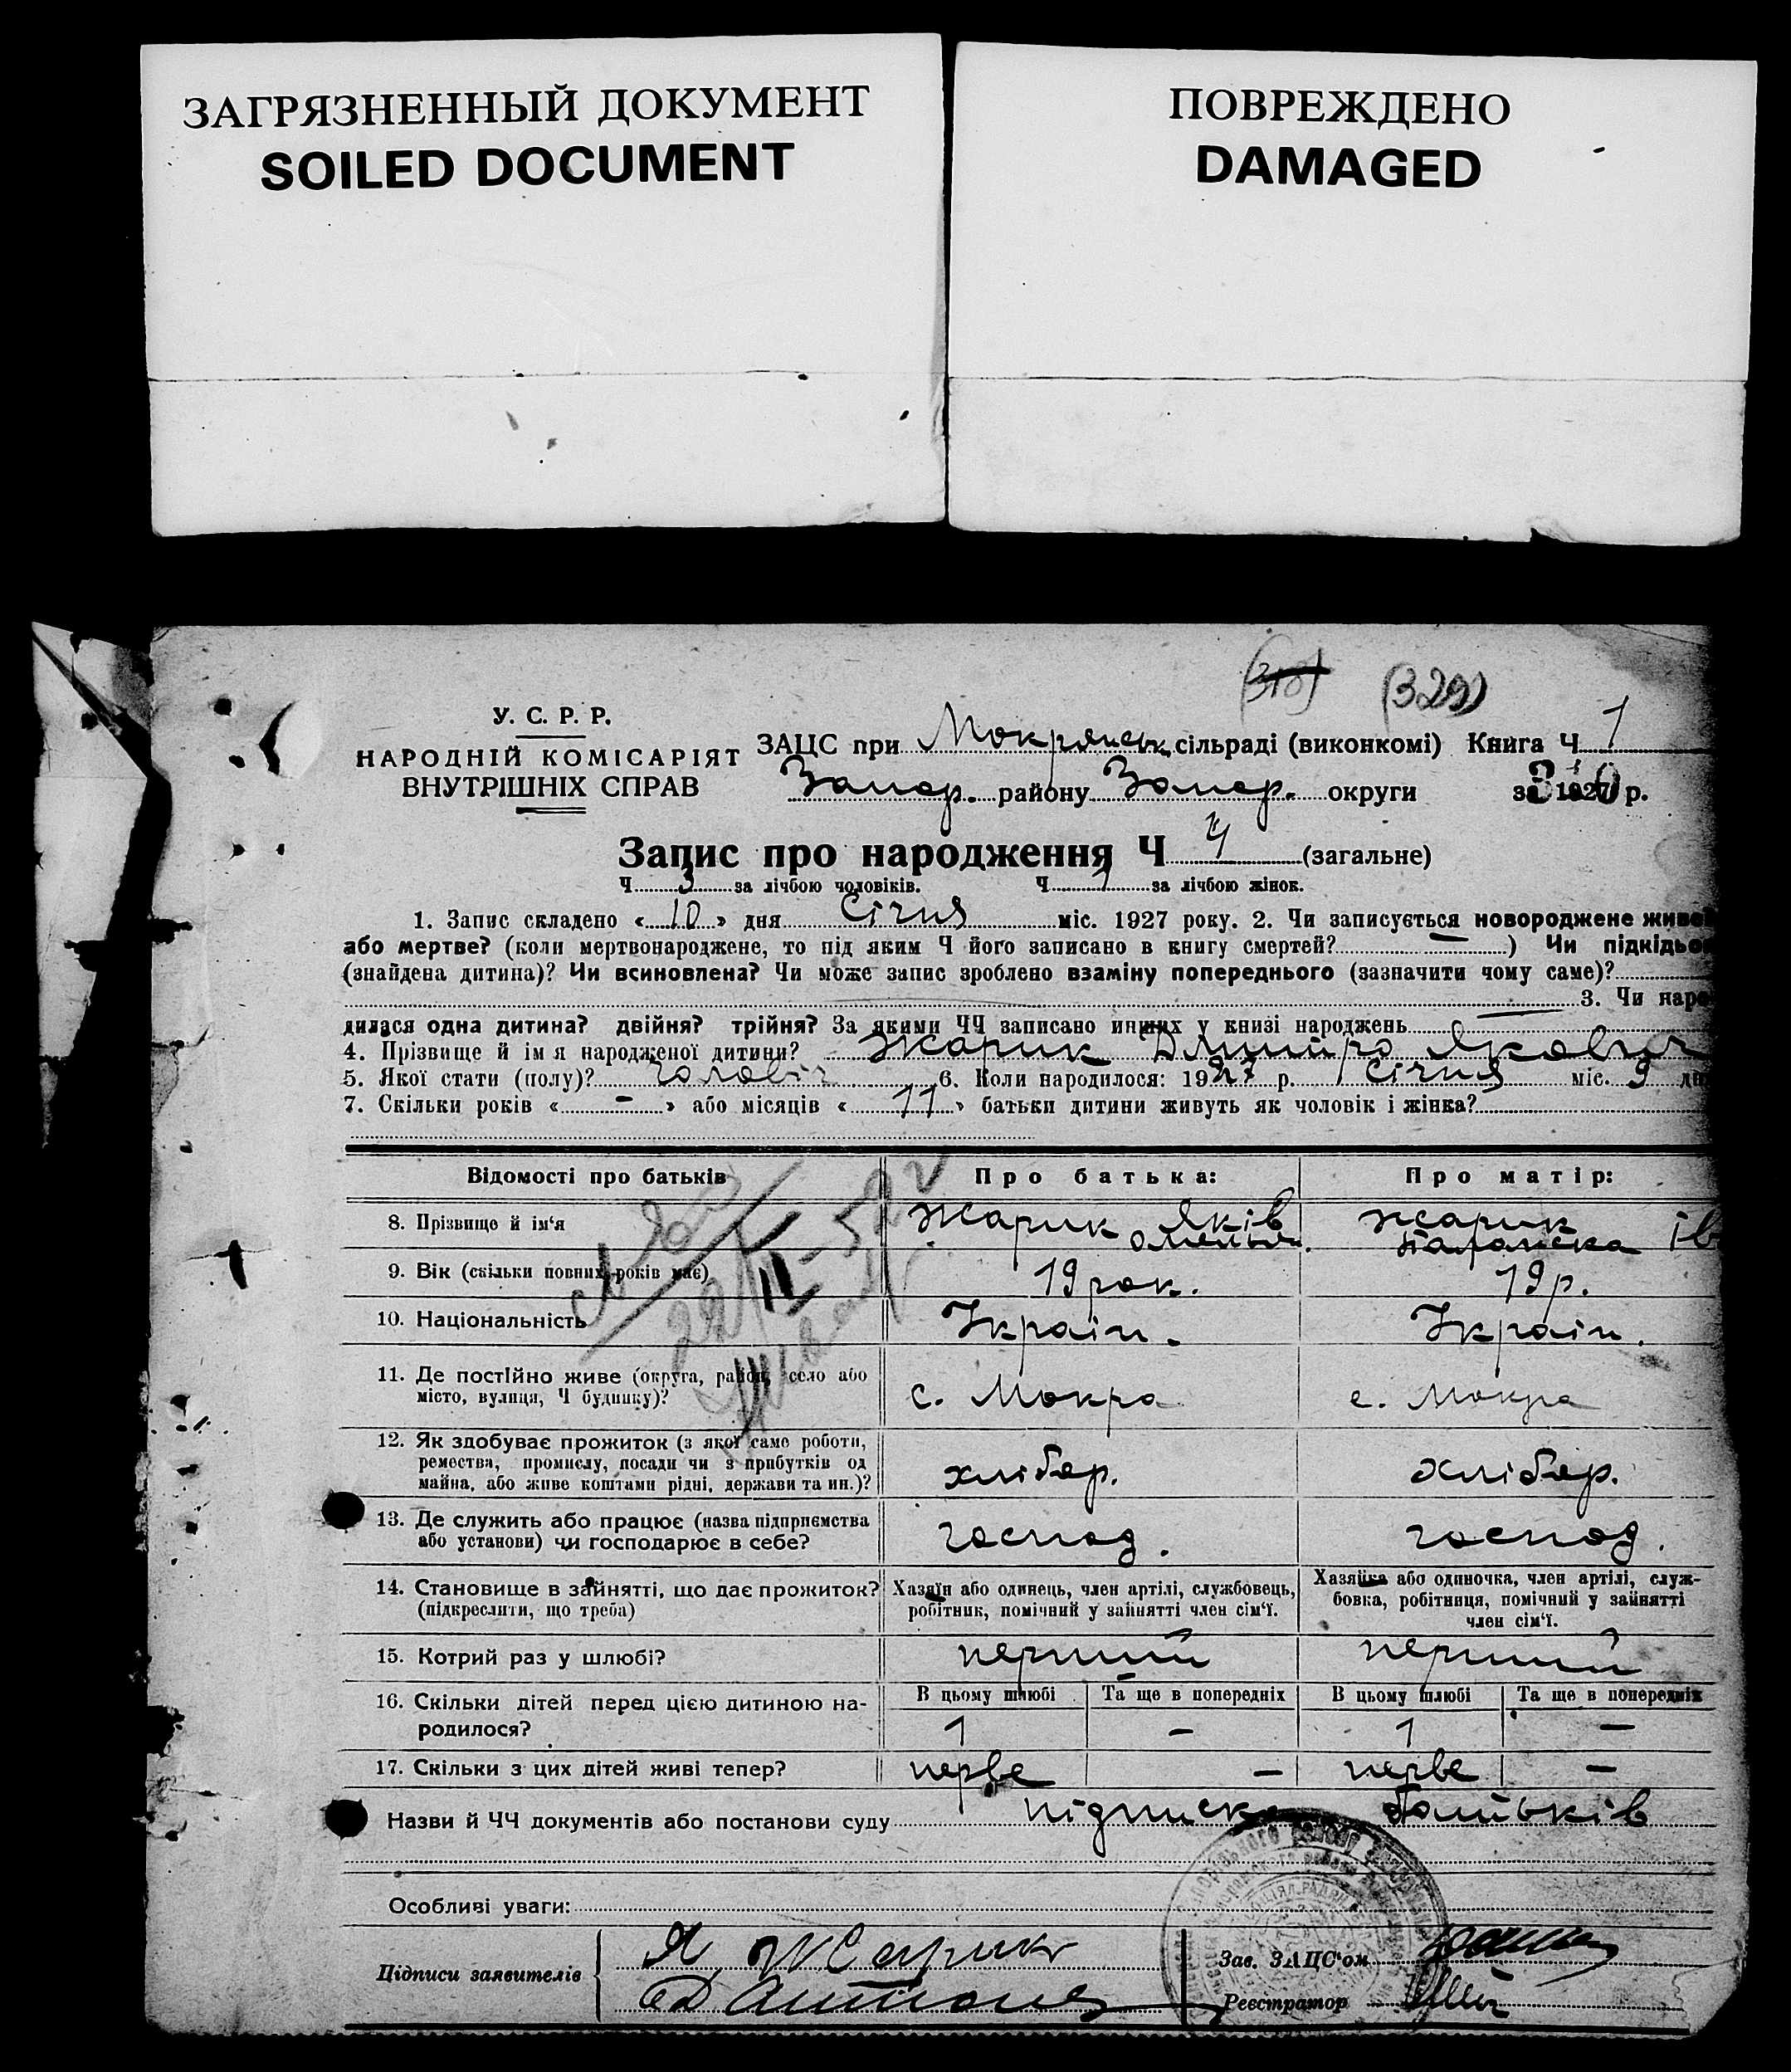 ЗАГРЯЗНЕННЫЙ ДОКУМЕНТ
SOILED DOCUMENT
ПОВРЕЖДЕНО
DAMAGED
(329)
У. С. Р. Р.
НАРОДНІЙ КОМІСАРІЯТ
ВНУТРІШНІХ СПРАВ
ЗАЦС при Мокрянськ сільраді (виконкомі) Книга Ч 1
Запор. району Запор. округи за 1927 р.
Запис про народження Ч 4 (загальне)
Ч 3 за лічбою чоловіків. Ч 1 за лічбою жінок.
1. Запис складено « 10 » дня Січня міс. 1927 року. 2. Чи записується новороджене живе
або мертве? (коли мертвонароджене, то під яким Ч його записано в книгу смертей? — ) Чи підкідьо
(знайдена дитина)? Чи всиновлена? Чи може запис зроблено взаміну попереднього (зазначити чому саме)?
3. Чи наро
дилася одна дитина? двійня? трійня? За якими ЧЧ записано инших у книзі народжень
4. Прізвище й ім я народженої дитини? Жарик Дмитро Якович
5. Якої стати (полу)? чоловіч 6. Коли народилося: 1927 р. Січня міс. 9 дн
7. Скільки років « - » або місяців « 11 » батьки дитини живуть як чоловік і жінка?
Відомості про батьків Про батька: Про матір:
8. Прізвище й ім'я Жарик Яків Омельян. Жарик Параска Ів
9. Вік (скільки повних років має) 19 рок. 19 р.
10. Національність Україн. Україн.
11. Де постійно живе (округа, район, село або
місто, вулиця, Ч будинку)? с. Мокра с. Мокра
12. Як здобуває прожиток (з якої саме роботи,
ремества, промислу, посади чи з прибутків од
майна, або живе коштами рідні, держави та ин.)? хлібор. хлібор.
13. Де служить або працює (назва підприємства
або установи) чи господарює в себе? господ. господ.
14. Становище в зайнятті, що дає прожиток?
(підкреслити, що треба)
Хазяїн або одинець, член артілі, службовець,
робітник, помічний у зайнятті член сім'ї.
Хазяйка або одиночка, член артілі, служ-
бовка, робітниця, помічний у зайнятті
член сім'ї.
15. Котрий раз у шлюбі? перший перший
16. Скільки дітей перед цією дитиною на-
родилося?
В цьому шлюбі Та ще в попередніх В цьому шлюбі Та ще в попередніх
1 — 1 —
17. Скільки з цих дітей живі тепер? перве — перве —
Назви й ЧЧ документів або постанови суду підписка батьків
Особливі уваги:
Підписи заявителів Я Жарик
Зав. ЗАЦС'ом
Реєстратор